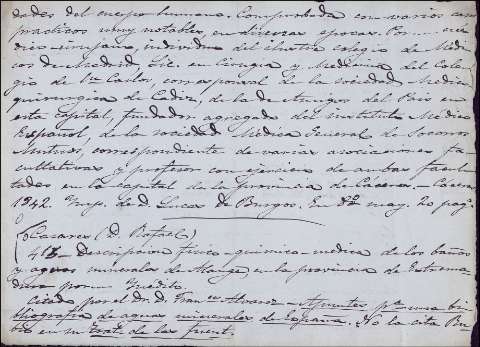 dades del cuerpo humano. Comprobada con varios casos
practicos muy notables, en diversas epocas. Por... me-
dico-cirujano, individuo del ilustre colegio de Medi-
cos de Madrid, Lic. en Cirugia y Medicina del Cole-
gio de Sn. Carlos, corresponsal de la Sociedad Medico
quirurgica de Cadiz, de la de Amigos del Pais en
esta capital, fundador agregado del Instituto Medico
Español, de la sociedad Medica General de Socorros
Mutuos, correspondiente de varias asociaciones fa-
cultativas y profesor con ejercicio de ambas facul-
tades en la capital de la provincia de Cáceres. - Caceres
1842 Imp. de D. Lucas de Burgos. En 8º may. 20 pag.
Casares (D. Rafael)
413 - Descripcion fisico-quimico-medica de los baños
y aguas minerales de Alange, en la provincia de Estrema-
dura por — Inedito
Citado por el Dr. D. Franco Alvarez - Apuntes pa una bi-
bliografia de aguas minerales de España. No la cita Ru-
bio en su Trat. de las fuent.